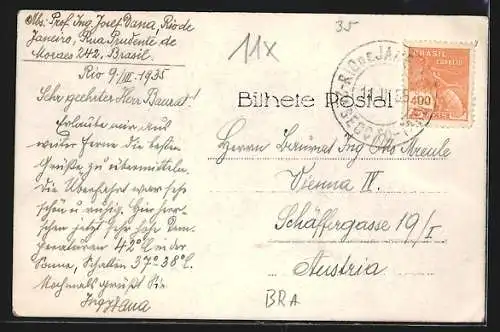 Abs. Prof. Ing. Josef Dana, Rio de
Janeiro, Rua Prudente de
Moraes 242, Brasil.
Rio 9/III. 1935
Sehr geehrter Herr Baurat!
Erlaube mir aus
weiter Ferne die besten
Grüße zu übermitteln.
Die Überfahrt war sehr
schön u. ruhig. Hier herr-
schen jetzt sehr hohe Tem-
peraturen 42° C in der
Sonne, Schatten 37°-38° C.
Nochmals grüßt Sie
Ing. Dana
35
11x
Bilhete Postal
RIO DE JANEIRO
BRASIL
CORREIO
400
Herrn Baurat Ing Otto
Vienna IV.
Schäffergasse 19/I
Austria
BRA